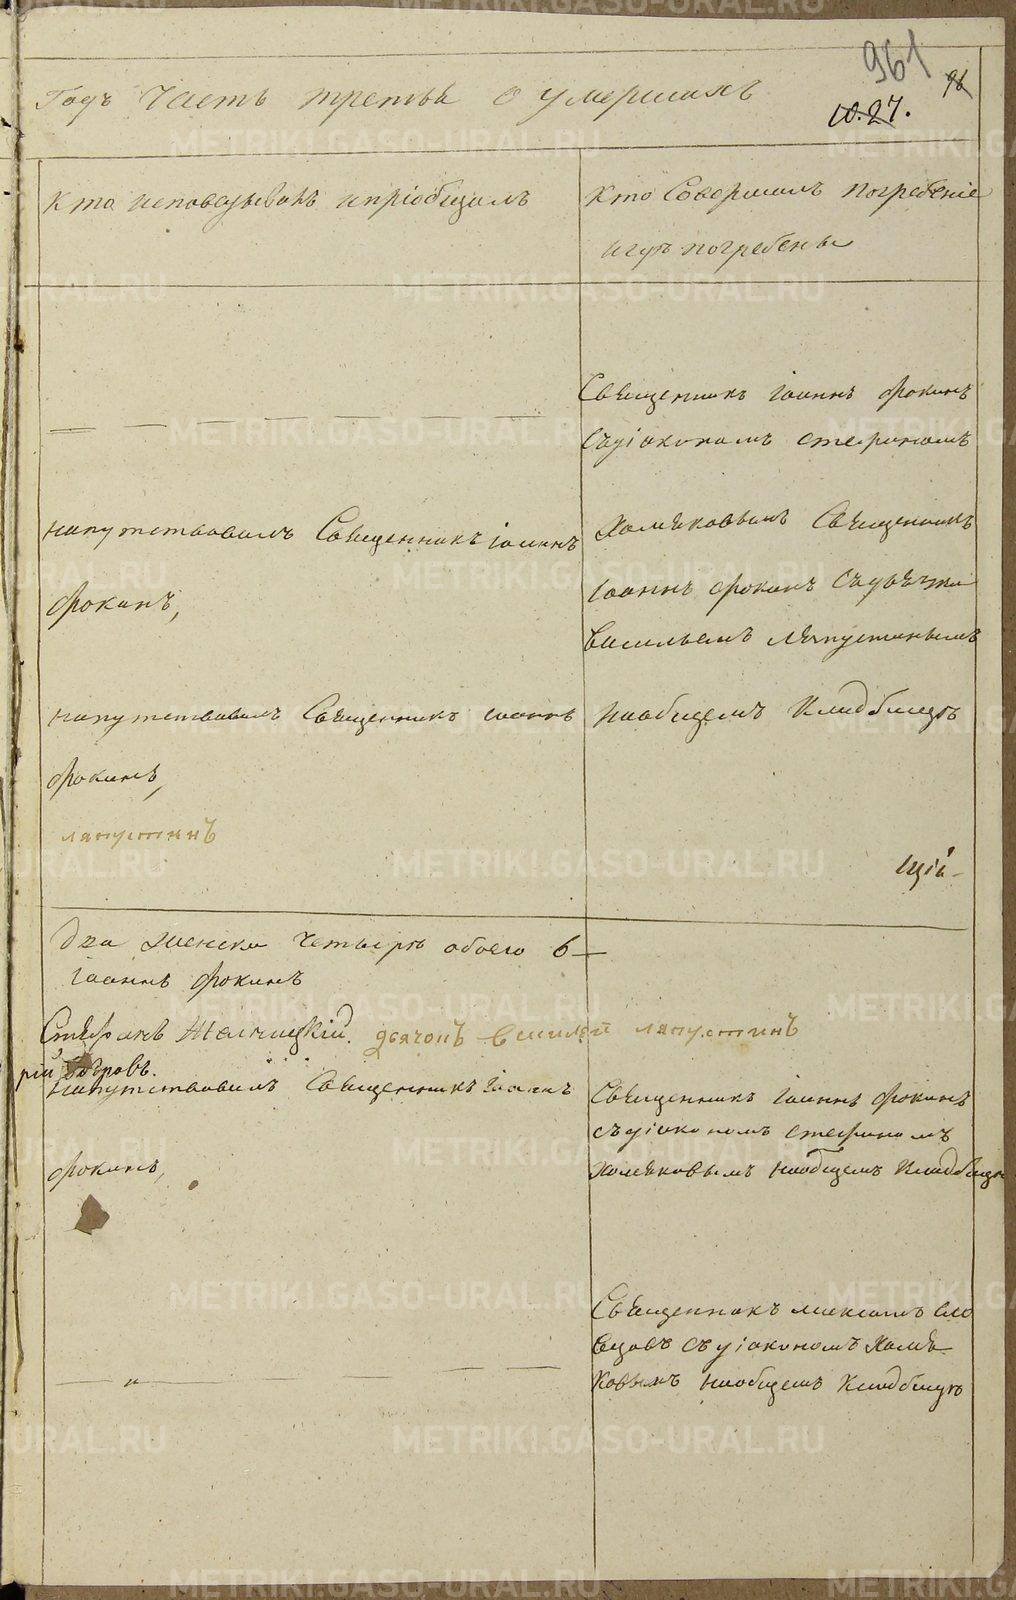 961
96
10.27.
Годъ часть третья о умершихъ
Кто исповедывалъ и пріобщалъ
Кто Совершалъ погребеніе
и гдѣ погребены
Священникъ Іоаннъ Фокинъ
съ діакономъ Стефаномъ
напутствовалъ Священникъ Іоаннъ
Фокинъ,
Хомяковымъ Священникъ
Іоаннъ Фокинъ съ дьячкомъ
Васильемъ Ляпустинымъ
напутствовалъ Священникъ Іоаннъ
Фокинъ,
на общемъ Кладбищѣ
ляпустинъ
щій
два женска четыре обоего 6
Іоаннъ Фокинъ
Стефанъ
дьячокъ Василей ляпустинъ
напутствовалъ Священникъ Іоаннъ
Фокинъ,
Священникъ Іоаннъ Фокинъ
съ діакономъ Стефаномъ
Хомяковымъ на общемъ Кладбищѣ
Священникъ Максимъ Сло
вцовъ съ діакономъ Хомя
ковымъ на общемъ Кладбищѣ
METRIKI.GASO-URAL.RU